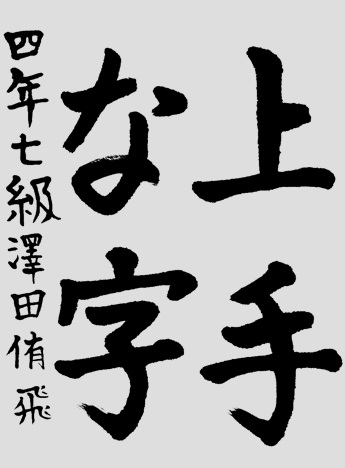 上手
な字
四年七級澤田侑飛